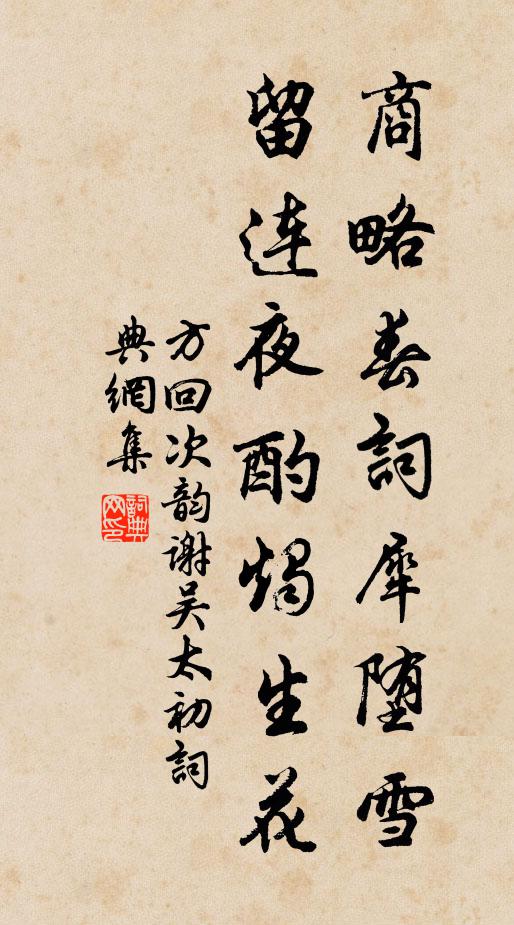 商略春詞犀墮雪
留連夜酌燭生花
方回次韵謝吴太初詞
典網集
詞典
网印